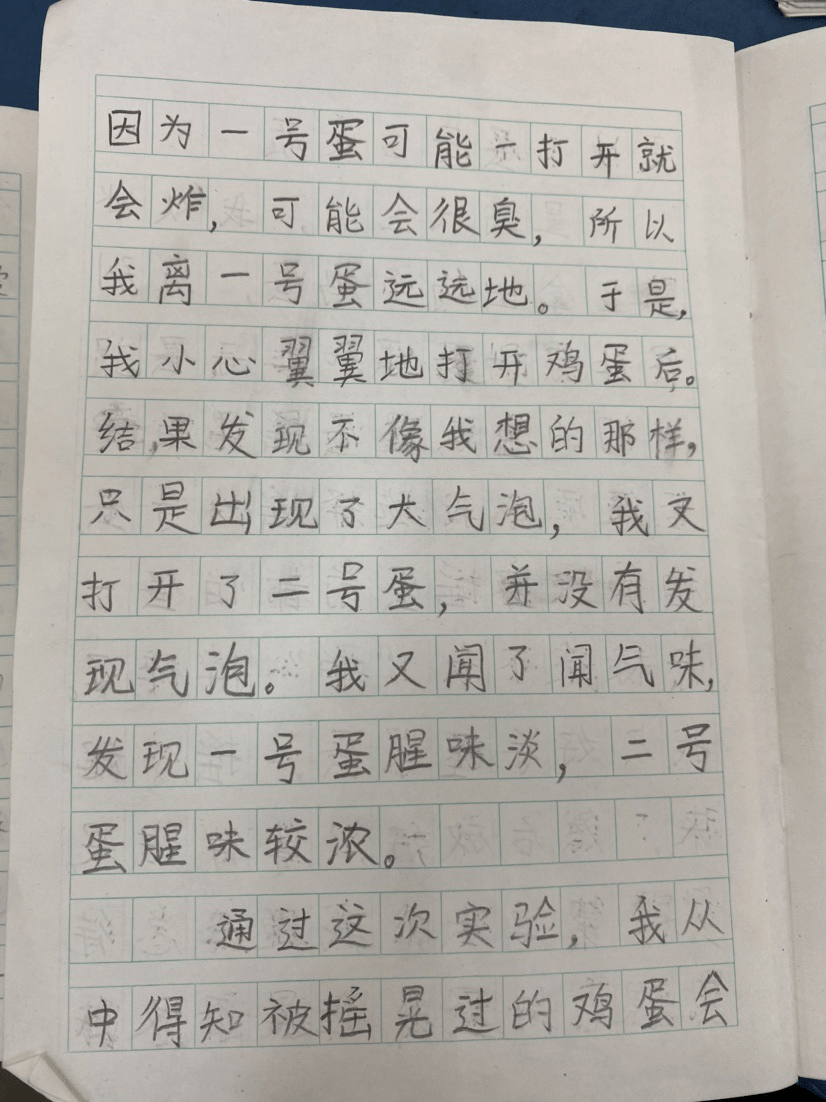 因为一号蛋可能一打开就
会炸，可能会很臭，所以
我离一号蛋远远地。于是，
我小心翼翼地打开鸡蛋后。
结，果发现不像我想的那样，
只是出现了大气泡，我又
打开了二号蛋，并没有发
现气泡。我又闻了闻气味，
发现一号蛋腥味淡，二号
蛋腥味较浓。
通过这次实验，我从
中得知被摇晃过的鸡蛋会